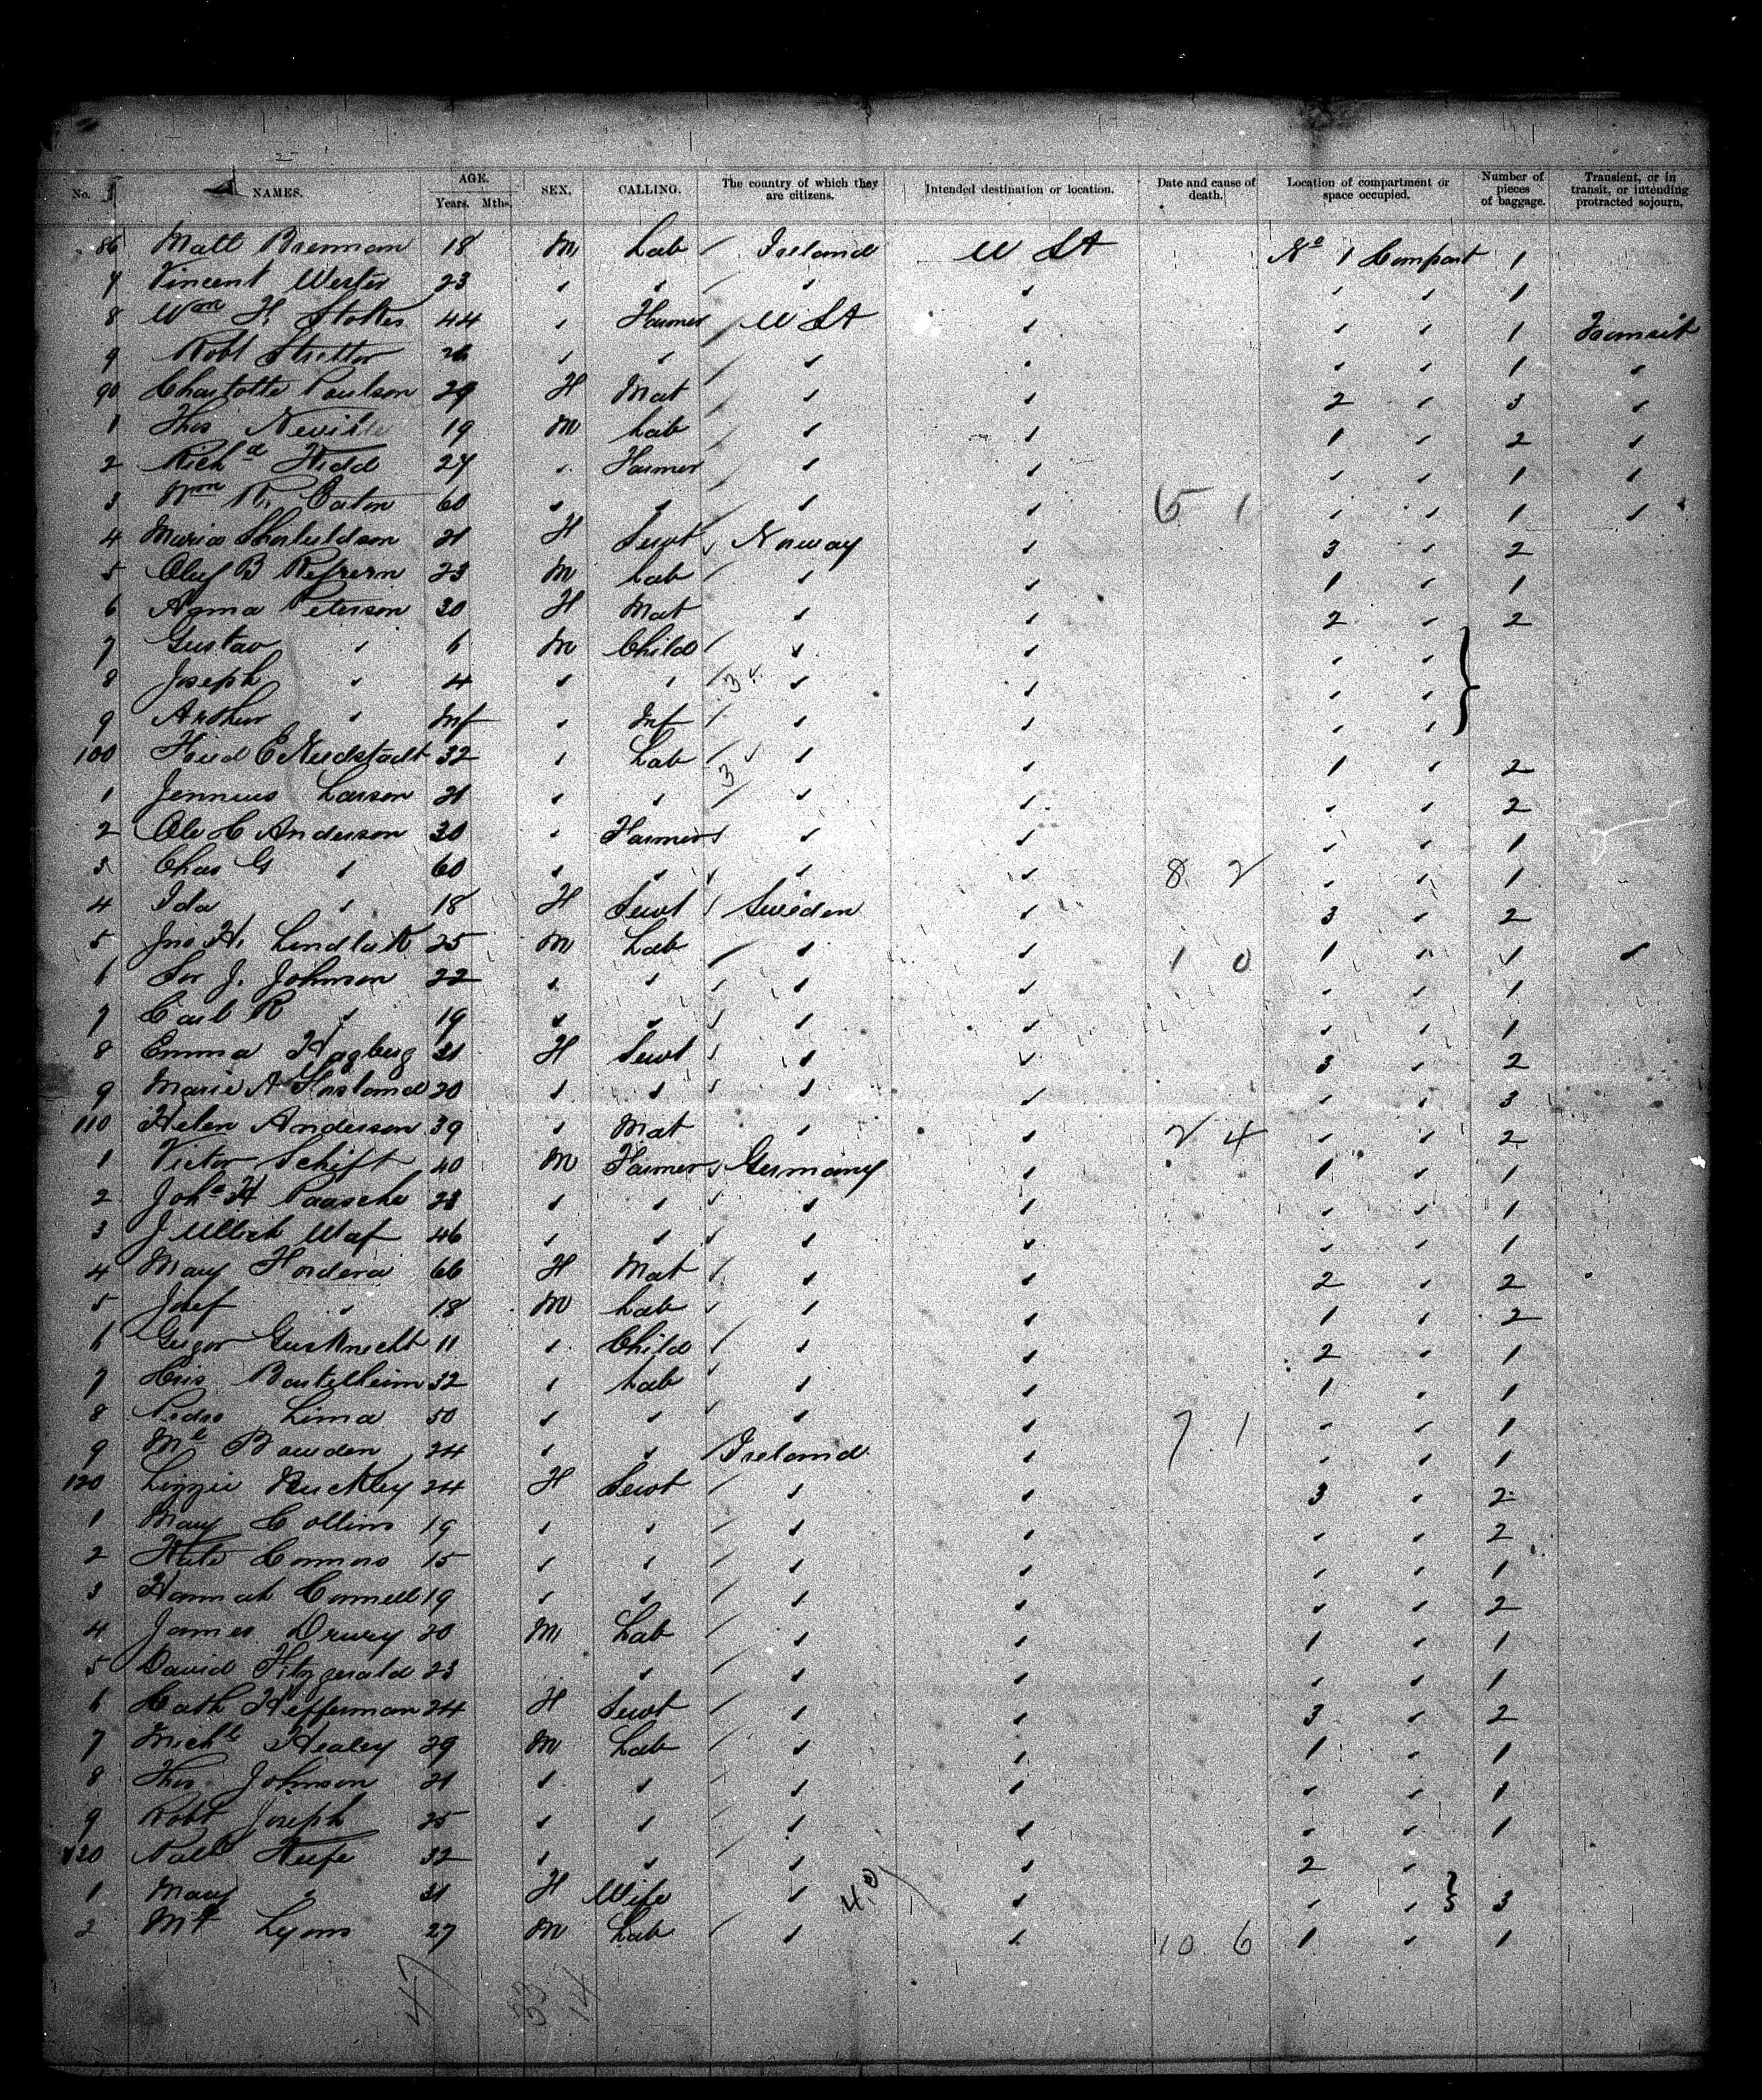 No. NAMES. AGE. Years. Mths. SEX. CALLING. The country of which they are citizens. Intended destination or location. Date and cause of death. Location of compartment or space occupied. Number of pieces of baggage. Transient, or in transit, or intending protracted sojourn.
86 Matt Brennan 18 M Lab Ireland U St No 1 Compart 1
7 Vincent Wester 23 1
8 Wm H. Stokes 44 Farmer U St 1 Transit
9 Robt Stretton 26 1
90 Charlotte Paulson 29 F Mat 2 3
1 Thos Neville 19 M Lab 1 2
2 Richd Kidd 27 Farmer 1
3 Wm R. Eaton 60 6 1 1
4 Maria 21 F Servt Norway 3 2
5 Oluf B 23 M Lab 1 1
6 Anna Peterson 30 F Mat 2 2
7 Gustav 6 M Child
8 Joseph 4 3
9 Arthur Inf Inf
100 32 Lab 3 1 2
1 Larson 21 2
2 Ole C Anderson 30 Farmer 1
3 Chas G 60 8 2 1
4 Ida 18 F Servt Sweden 3 2
5 Jno H. 25 M Lab 1 0 1 1
6 J. Johnson 22 1
7 Carl R 19 1
8 Emma Hagberg 21 F Servt 3 2
9 Marie A 20 3
110 Helen Anderson 39 Mat 2 4 2
1 Victor Schift 40 M Farmer Germany 1 1
2 H Paasche 28 1
3 J Ullrich 46 1
4 Mary 66 F Mat 2 2
5 Josef 18 M Lab 1 2
6 11 Child 2 1
7 Bartelheim 32 Lab 1 1
8 Pedro Lima 50 7 1 1
9 Ml Bowden 24 Ireland 1
120 Lizzie Buckley 24 F Servt 3 2
1 Mary Collins 19 2
2 Kate Connors 15 1
3 Hannah Connell 19 2
4 James Drury 20 M Lab 1 1
5 David Fitzgerald 23 1
6 Cath Heffernan 24 F Servt 3 2
7 Michl Healey 29 M Lab 1 1
8 Thos Johnson 21 1
9 Robt Joseph 25 1
130 Patk Keefe 32 2
1 Mary 31 F Wife 3
2 Mt Lyons 27 M Lab 10 6 1 1
47 33 14